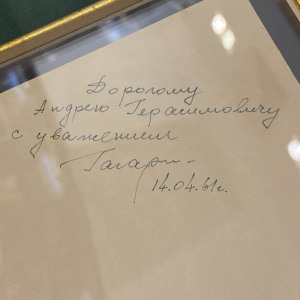 Дорогому
Андрею Герасимовичу
с уважением
Гагарин
14.04.61г.